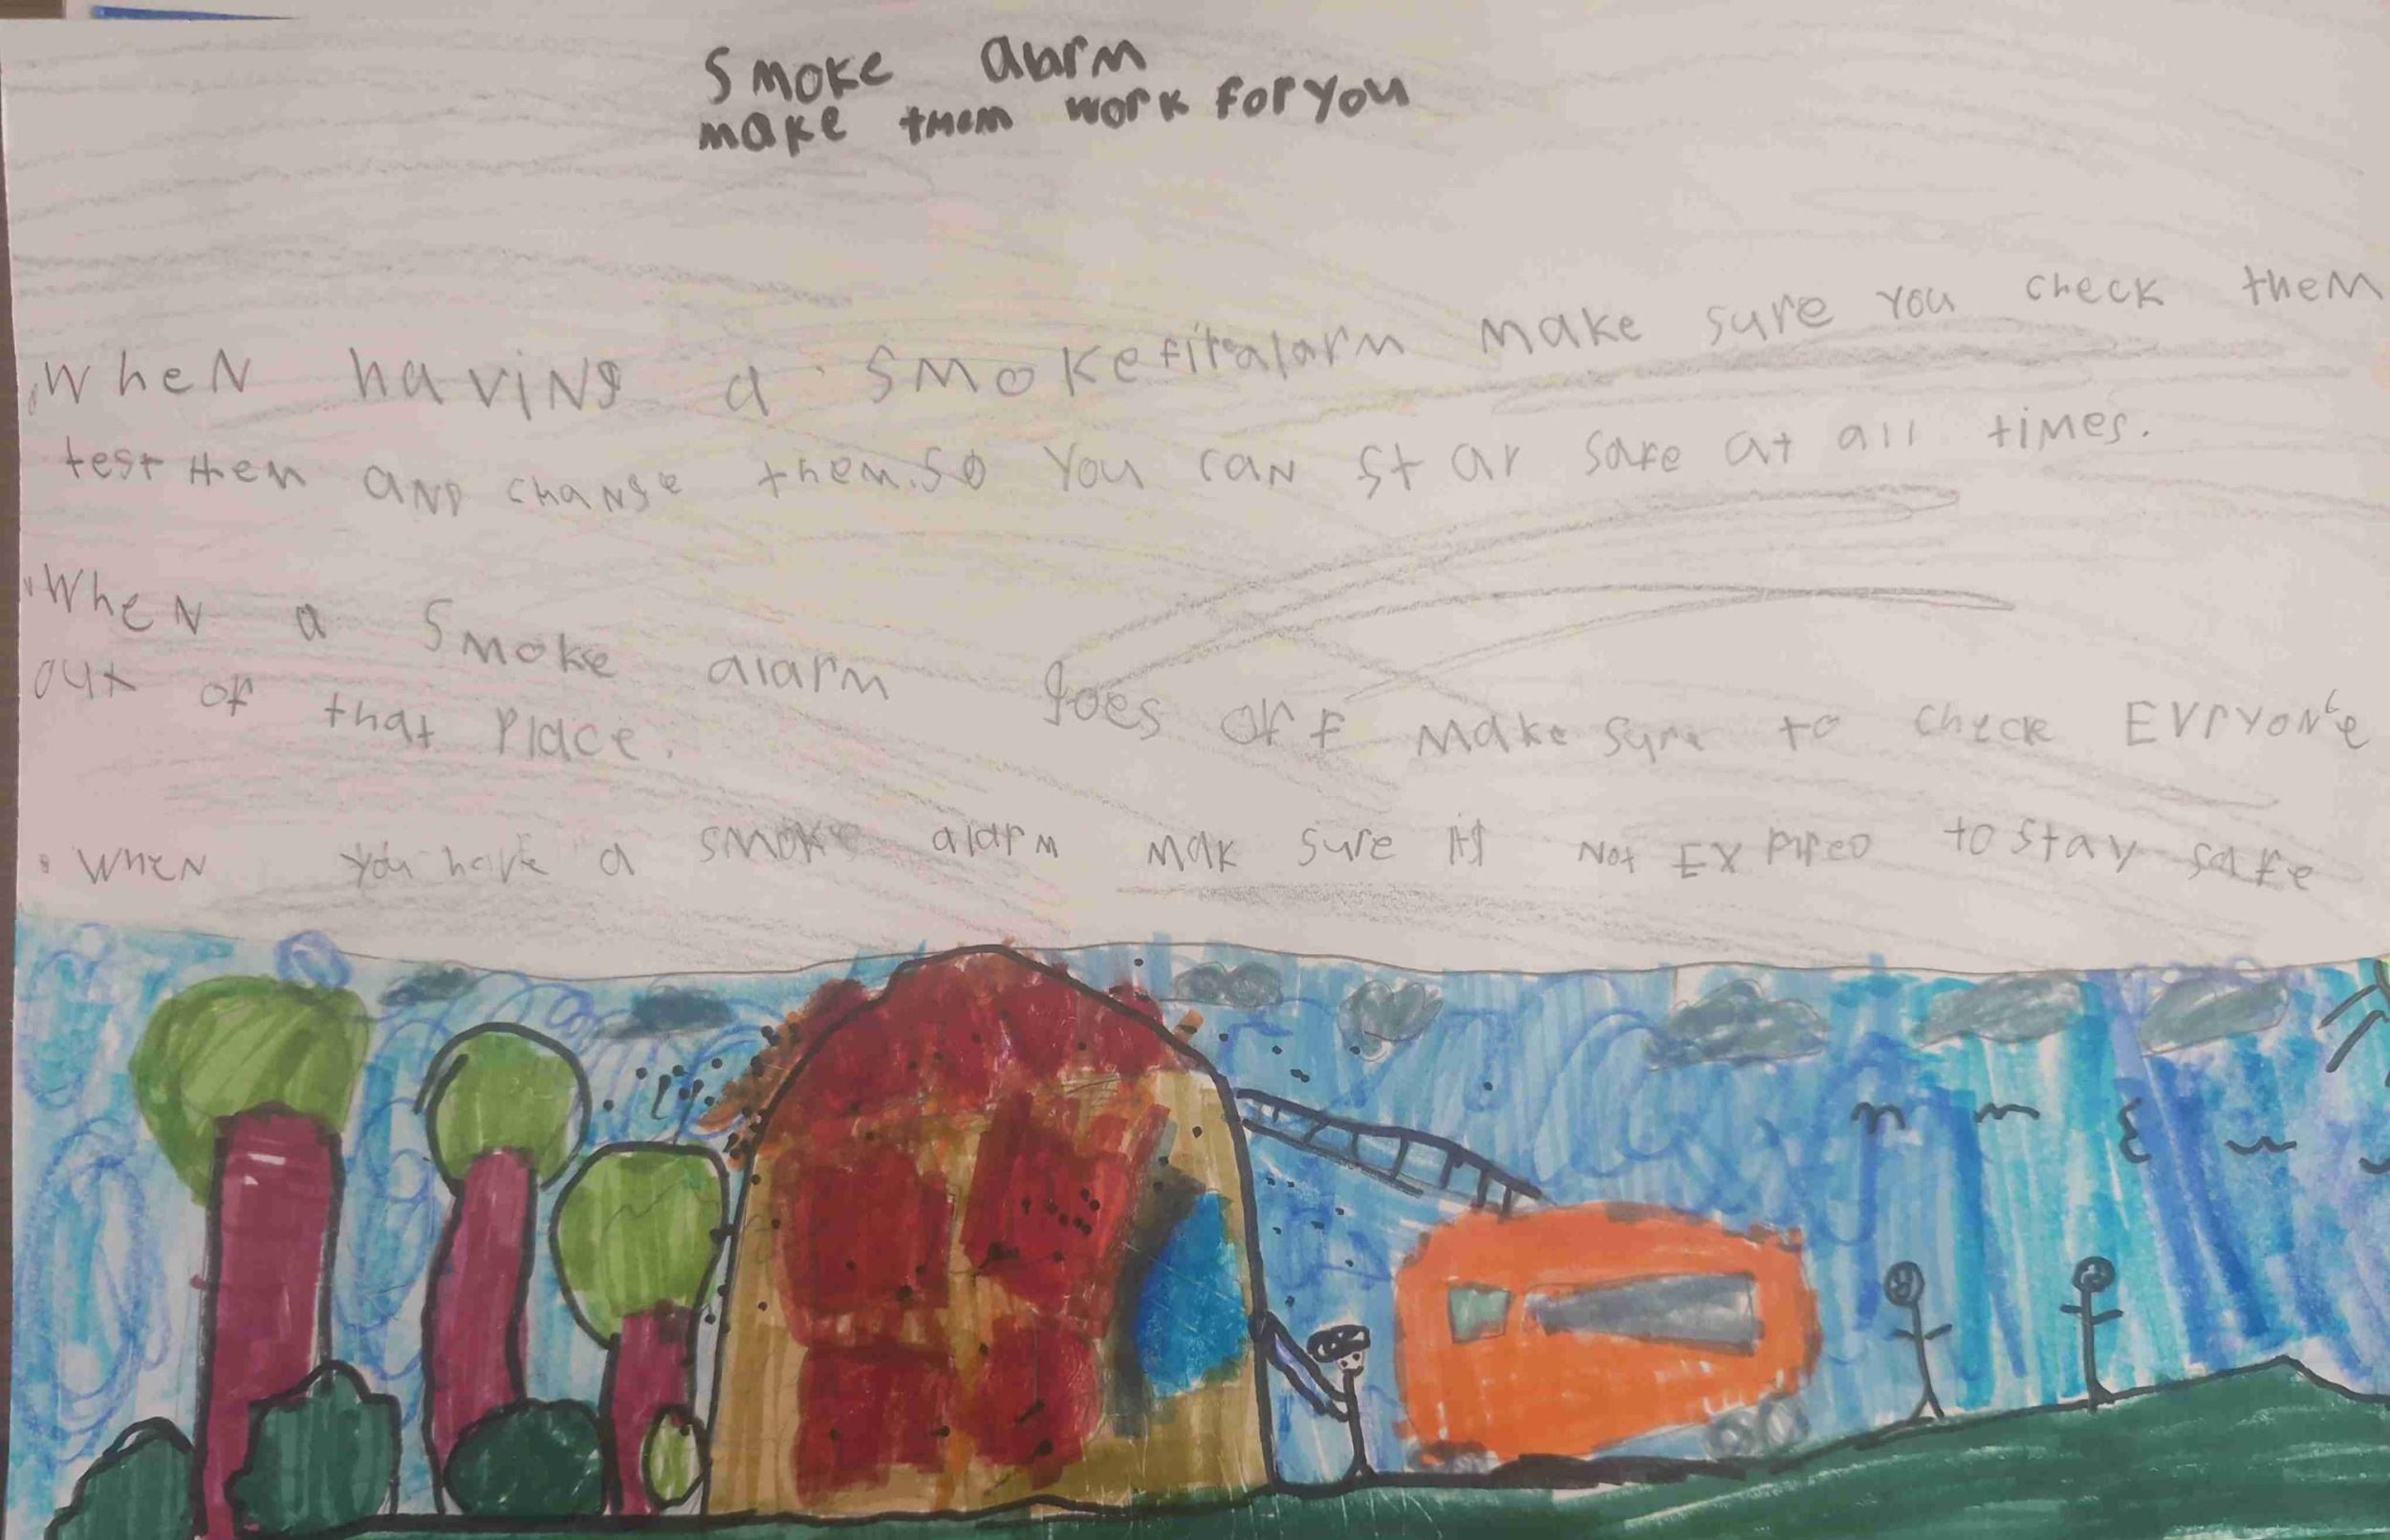 Smoke alarm
make them work for you
When having a smoke firealarm make sure you check them
test them and change them. so you can star safe at all times.
When a Smoke alarm goes off make sure to check Evryone
out of that place.
When you have a smoke alarm mak sure its Not Expired to stay safe